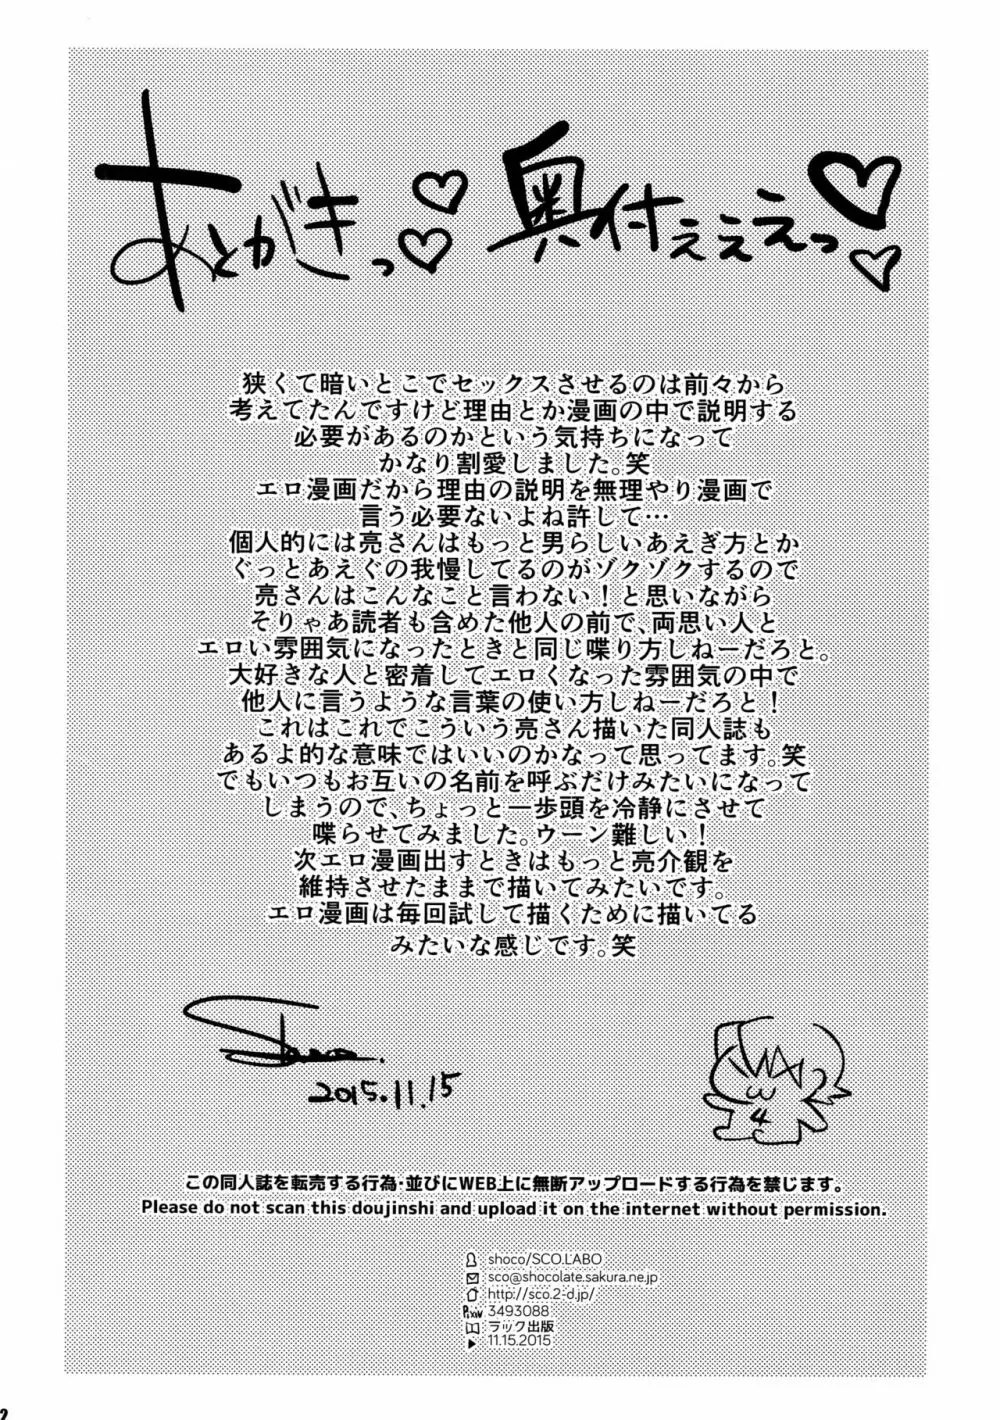 あとがきっ♡♡ 奥付ぇぇえっ♡♡
狭くて暗いとこでセックスさせるのは前々から
考えてたんですけど理由とか漫画の中で説明する
必要があるのかという気持ちになって
かなり割愛しました。笑
エロ漫画だから理由の説明を無理やり漫画で
言う必要ないよね許して…
個人的には亮さんはもっと男らしいあえぎ方とか
ぐっとあえぐの我慢してるのがゾクゾクするので
亮さんはこんなこと言わない！と思いながら
そりゃあ読者も含めた他人の前で、両思い人と
エロい雰囲気になったときと同じ喋り方しねーだろと。
大好きな人と密着してエロくなった雰囲気の中で
他人に言うような言葉の使い方しねーだろと！
これはこれでこういう亮さん描いた同人誌も
あるよ的な意味ではいいのかなって思ってます。笑
でもいつもお互いの名前を呼ぶだけみたいになって
しまうので、ちょっと一歩頭を冷静にさせて
喋らせてみました。ウーン難しい！
次エロ漫画出すときはもっと亮介観を
維持させたままで描いてみたいです。
エロ漫画は毎回試して描くために描いてる
みたいな感じです。笑
2015.11.15
この同人誌を転売する行為・並びにWEB上に無断アップロードする行為を禁じます。
Please do not scan this doujinshi and upload it on the internet without permission.
shoco/SCO.LABO
sco@shocolate.sakura.ne.jp
http://sco.2-d.jp/
Pixiv 3493088
ラック出版
11.15.2015
2